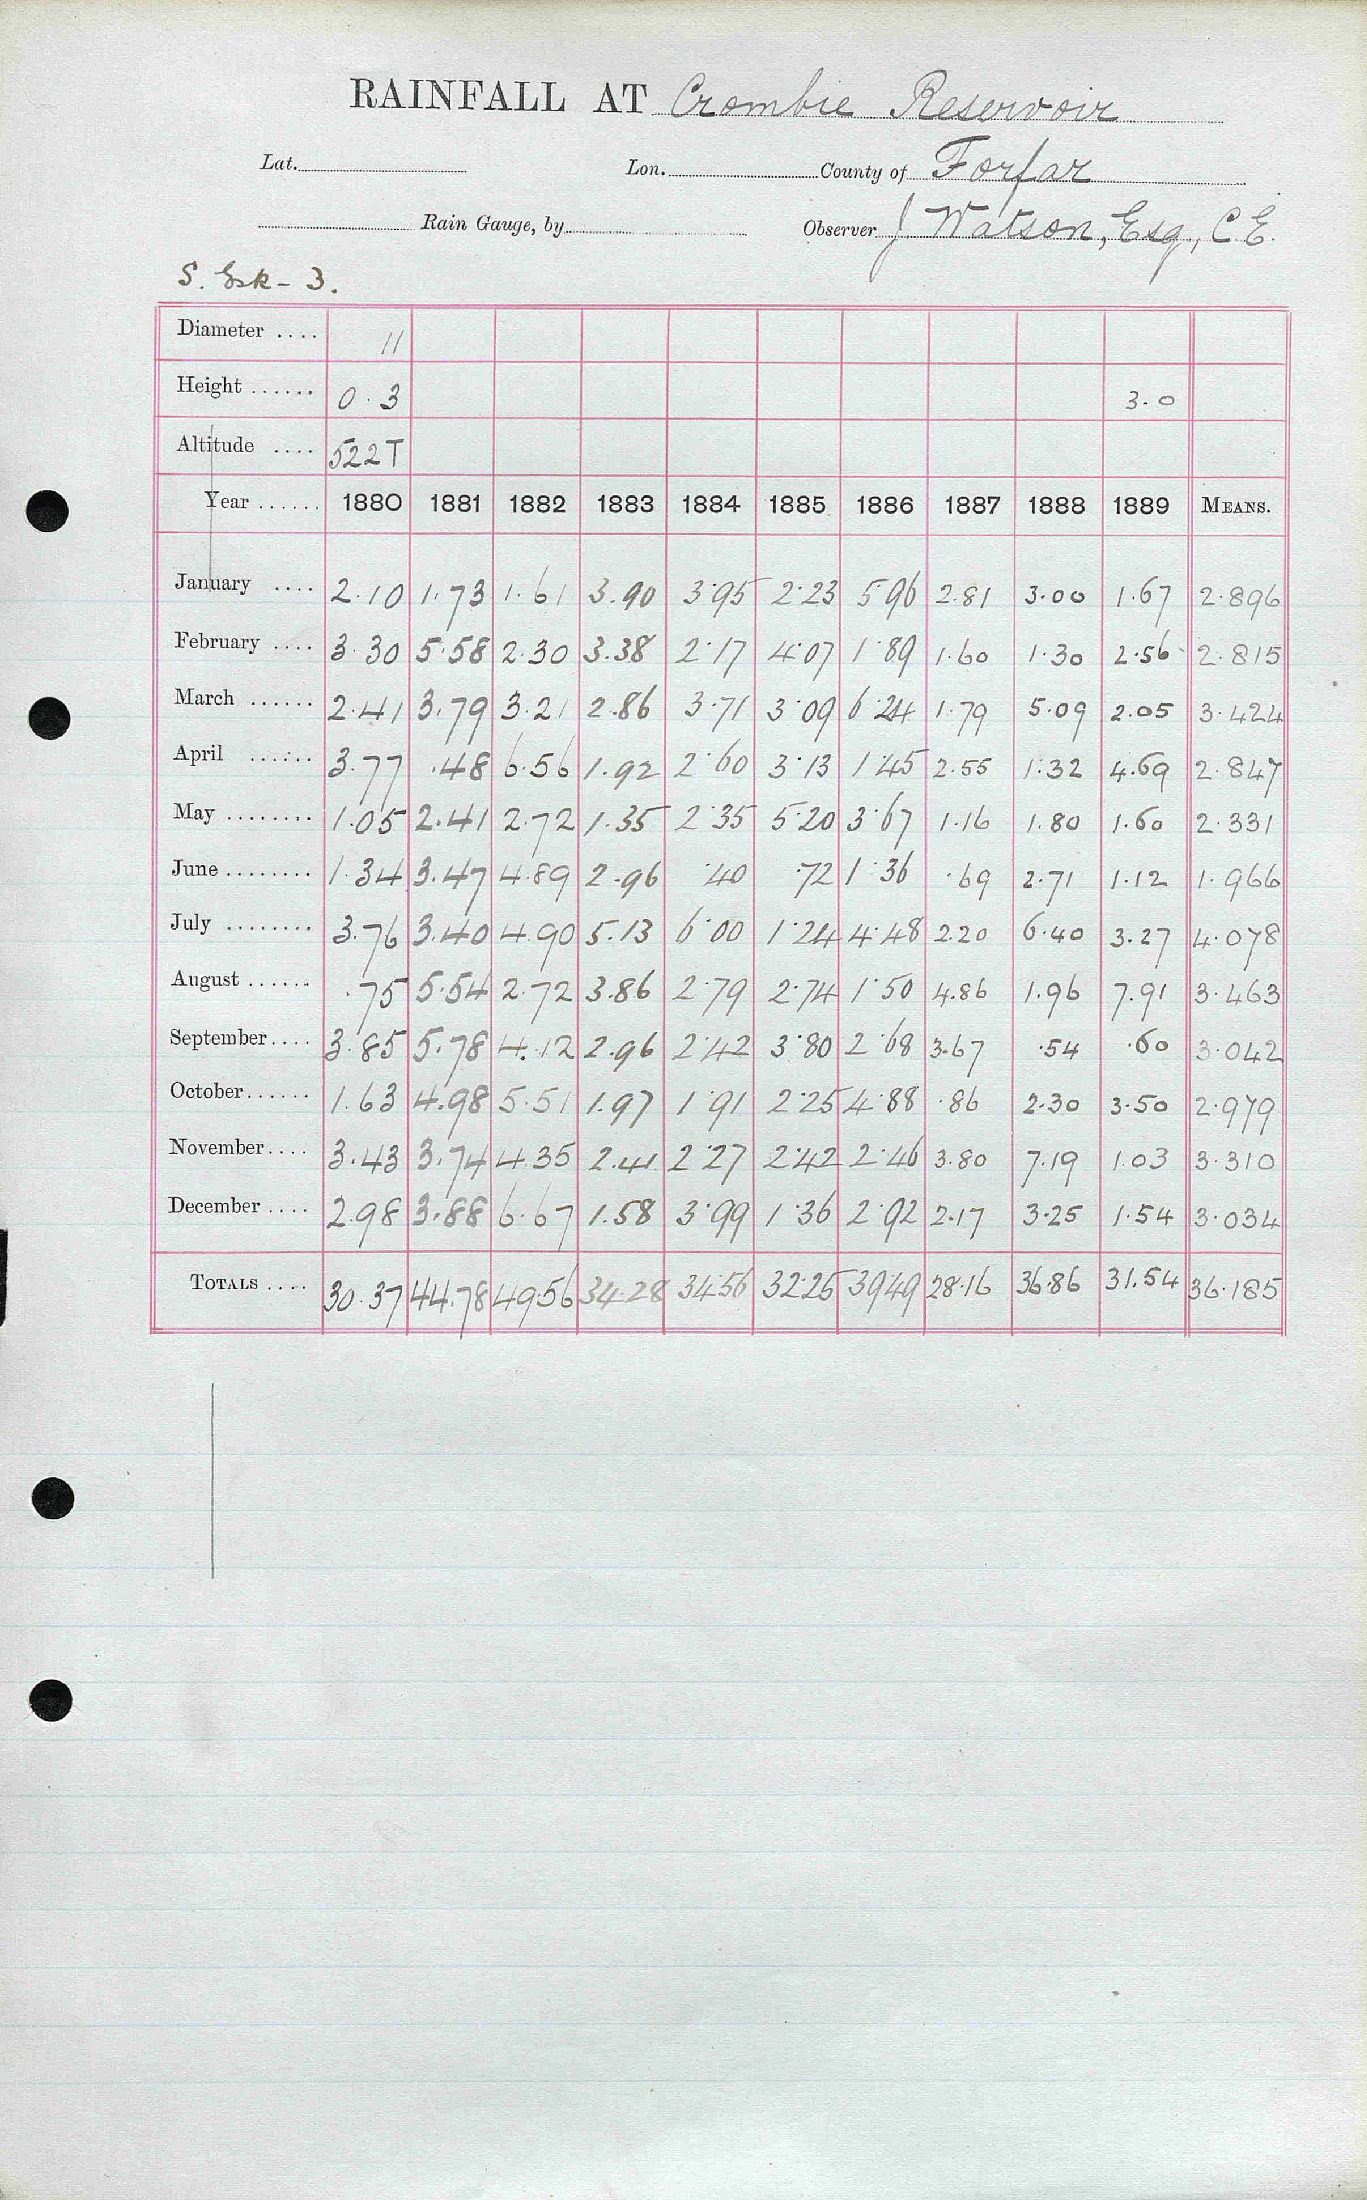 RAINFALL AT Crombie Reservoir
Lat. Lon. County of Forfar
Rain Gauge, by Observer J. Watson, Esq., C.E.
S. Esk - 3.
Diameter .... 11
Height ...... 0.3 3.0
Altitude .... 522T
Year ...... 1880 1881 1882 1883 1884 1885 1886 1887 1888 1889 MEANS.
January .... 2.10 1.73 1.61 3.90 3.95 2.23 5.96 2.81 3.00 1.67 2.896
February .... 3.30 5.58 2.30 3.38 2.17 4.07 1.89 1.60 1.30 2.56 2.815
March ...... 2.41 3.79 3.21 2.86 3.71 3.09 6.24 1.79 5.09 2.05 3.424
April ...... 3.77 .48 6.56 1.92 2.60 3.13 1.45 2.55 1.32 4.69 2.847
May ........ 1.05 2.41 2.72 1.35 2.35 5.20 3.67 1.16 1.80 1.60 2.331
June ........ 1.34 3.47 4.89 2.96 .40 .72 1.36 .69 2.71 1.12 1.966
July ........ 3.76 3.40 4.90 5.13 6.00 1.24 4.48 2.20 6.40 3.27 4.078
August ...... .75 5.54 2.72 3.86 2.79 2.74 1.50 4.86 1.96 7.91 3.463
September .... 3.85 5.78 4.12 2.96 2.42 3.80 2.68 3.67 .54 .60 3.042
October ...... 1.63 4.98 5.51 1.97 1.91 2.25 4.88 .86 2.30 3.50 2.979
November .... 3.43 3.74 4.35 2.41 2.27 2.42 2.46 3.80 7.19 1.03 3.310
December .... 2.98 3.88 6.67 1.58 3.99 1.36 2.92 2.17 3.25 1.54 3.034
TOTALS .... 30.37 44.78 49.56 34.28 34.56 32.25 39.49 28.16 36.86 31.54 36.185